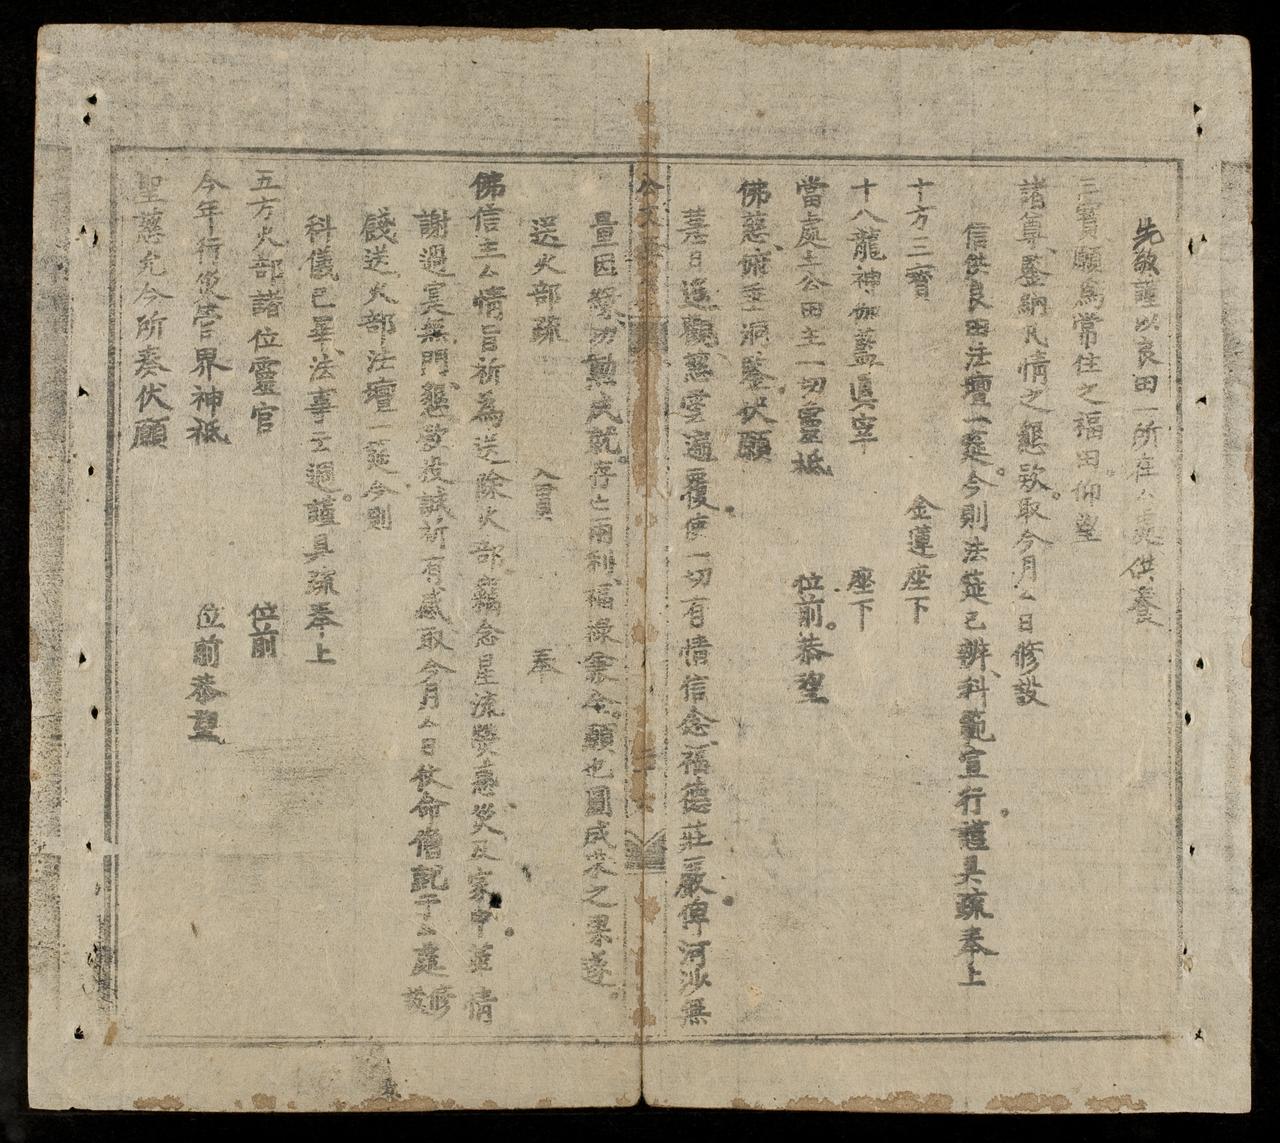 先敬謹以良田一所在厶處供養
三寶願爲常住之福田仰望
諸尊鑒納凡情之懇欵取今月厶日修設
信供良田法壇一筵今則法筵已辦科範宣行謹具疏奉上
十方三寶 金蓮座下
十八龍神伽藍真宰 座下
當處土公田主一切靈祗 位前恭望
佛慈俯垂洞鑒伏願
慧日遥觀慈雲遍覆使一切有情信念福德莊嚴俾河沙無
公文
量因緣功勳成就存亡兩利福祿兼全願也圓成求之果遂
送火部疏 入貢 奉
佛信主厶情旨祈為送除火部竊念星流熒惑災及家中並情
謝過寔無門懇切投誠祈有感取今月厶日仗命僧就于厶處修設
餞送火部法壇一筵今則
科儀已畢法事云週謹具疏奉上
五方火部諸位靈官 位前
今年行後管界神祗 位前恭望
聖慈允今所奏伏願